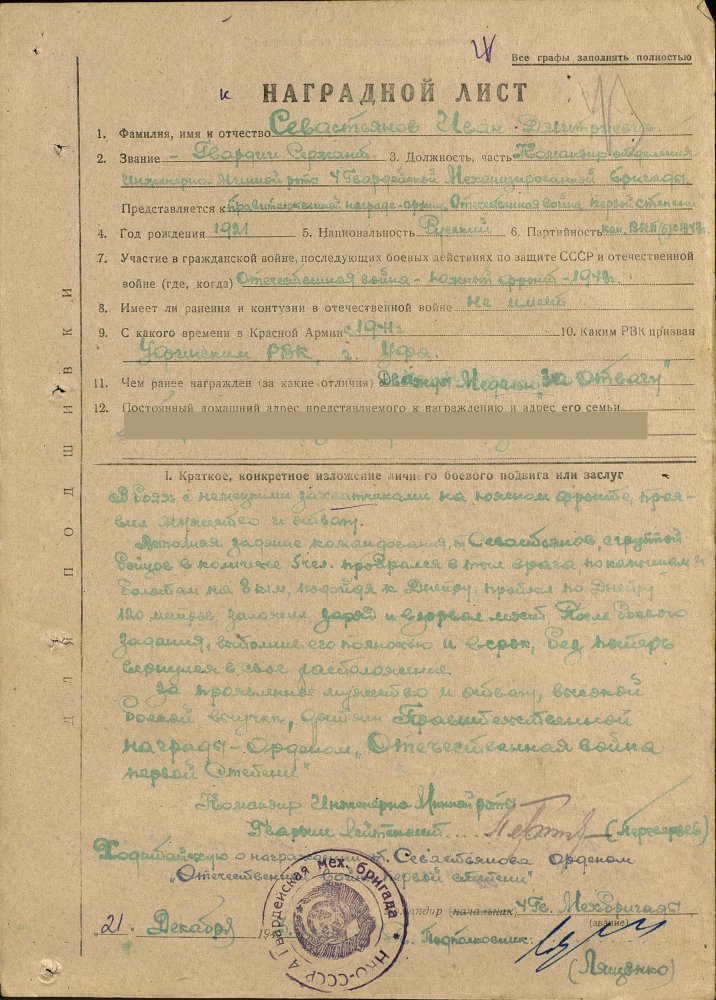 Все графы заполнять полностью
к НАГРАДНОЙ ЛИСТ
1. Фамилия, имя и отчество Севастьянов Иван Дмитриевич
2. Звание Гвардии Сержант 3. Должность, часть Командир отделения
Инженерно Минной роты 4 Гвардейской Механизированной Бригады.
Представляется к правительственной награде-орден „Отечественная война первой степени
4. Год рождения 1921 5. Национальность Русский 6. Партийность кан. ВКП(б) с 1943г.
7. Участие в гражданской войне, последующих боевых действиях по защите СССР и отечественной
войне (где, когда) Отечественная война - Южный фронт - 1943г.
8. Имеет ли ранения и контузии в отечественной войне не имеет
9. С какого времени в Красной Армии с 1941г 10. Каким РВК призван
Уфинским РВК, г. Уфа.
11. Чем ранее награжден (за какие отличия) Медалью „За Отвагу"
12. Постоянный домашний адрес представляемого к награждению и адрес его семьи
ДЛЯ ПОДШИВКИ
I. Краткое, конкретное изложение личного боевого подвига или заслуг
В боях с немецкими захватчиками на южном фронте, проя-
вил мужество и отвагу.
Выполняя задание командования, т. Севастьянов, с группой
бойцов в количве 5 чел. пробрался в тыл врага по камышам и
болотам на 8 км, подойдя к Днепру, проплыл по Днепру
120 метров, заложил заряд и взорвал мост. После боевого
задания, выполнив его полностью и в срок, без потерь
вернулся в свое расположение.
За проявленное мужество и отвагу, высокой
боевой выучки, достоин Правительственной
награды - Орденом „Отечественная война
первой Степени"
Командир Инженерно Минной роты
Гвардии лейтенант (Переверзев)
Ходатайствую о награждении т. Севастьянова орденом
„Отечественная война первой степени"
Командир (начальник) 4 Гв. МехБригады
(звание)
„21" Декабря 194
Гв. Подполковник:
(Лященко)
НКО-СССР 4 Гвардейская мех. бригада